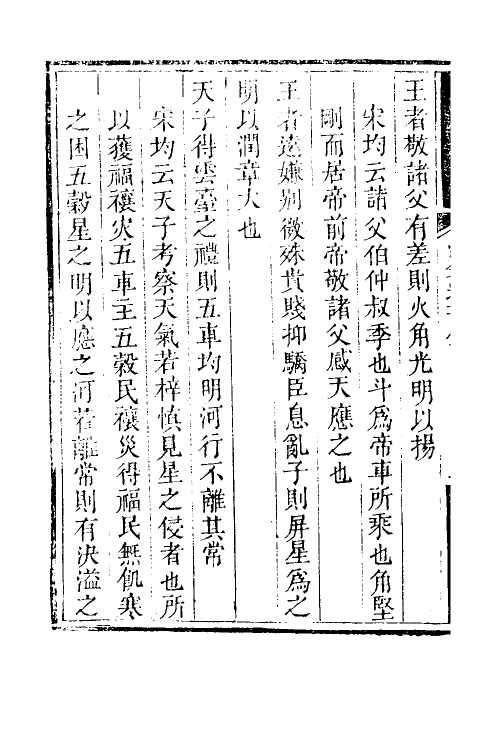 王者敬諸父有差則火角光明以揚
宋均云諸父伯仲叔季也斗為帝車所乘也角堅
剛而居帝前帝敬諸父感天應之也
王者遠嫌別微殊貴賤抑驕臣息亂子則屏星為之
明以潤章大也
天子得雲臺之禮則五車均明河行不離其常
宋均云天子考察天氣若梓慎見星之侵者也所
以獲福禳火五車主五穀民禳災得福民無飢寒
之困五穀星之明以應之河若離常則有決溢之